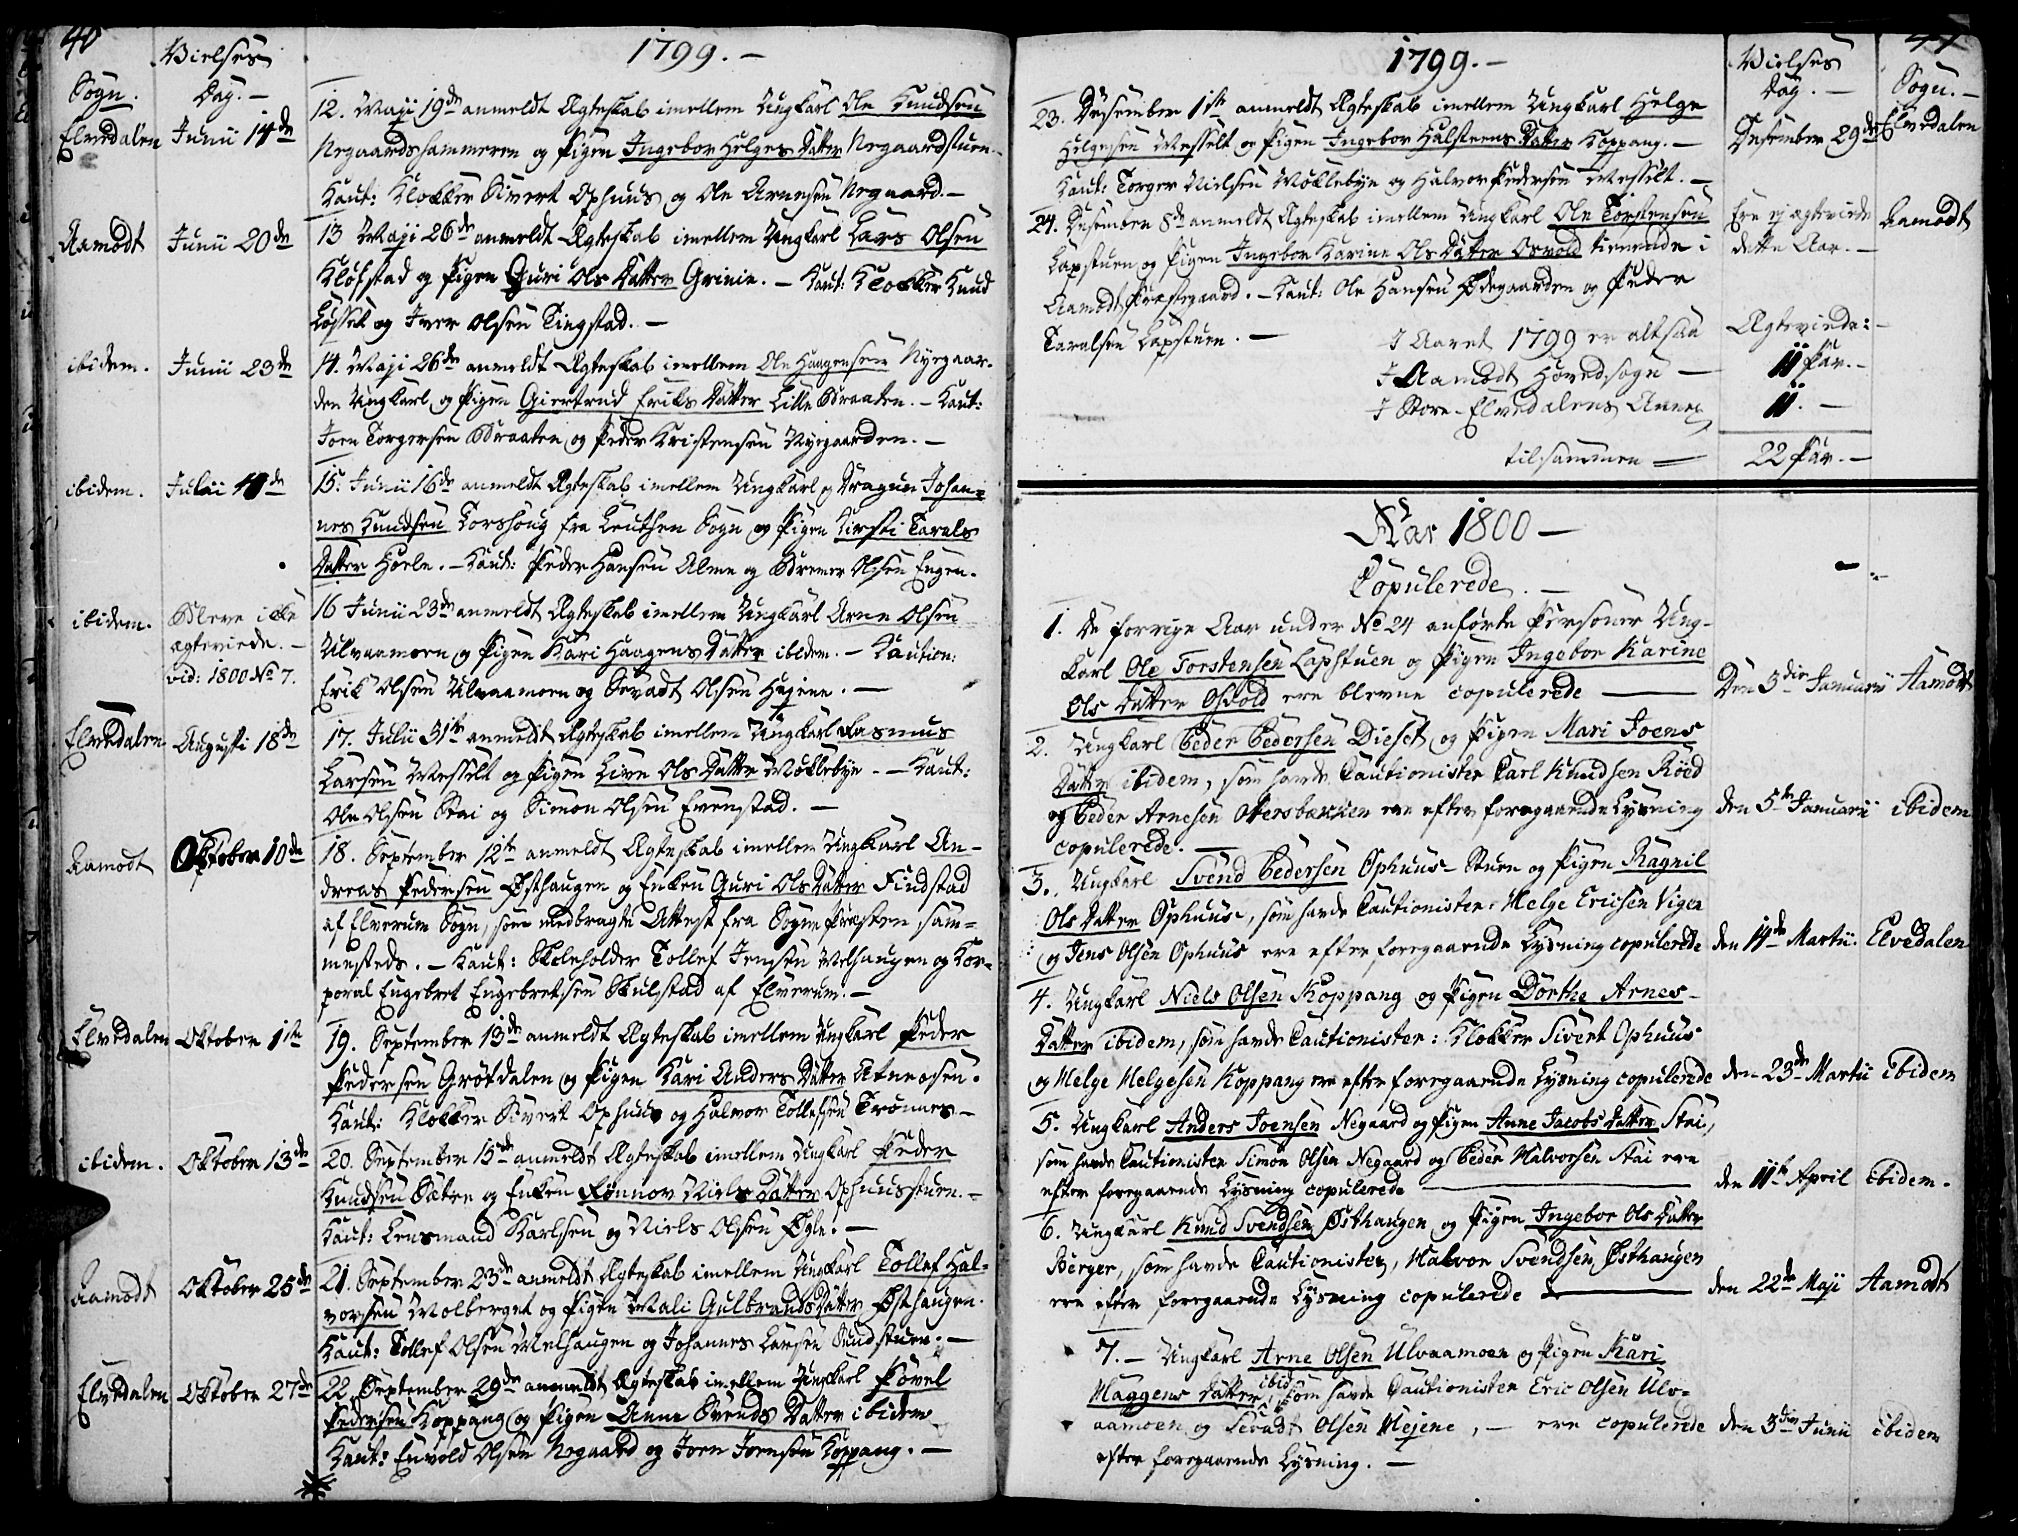 40
Vielses
1799. –
Sogn.
Dag. –
Elvedalen
Junii 14de
12. Maji 19de anmeldt Ægteskab imellem Ungkarl Ole Knudsen
Negaardshammeren og Pigen Ingebor Helges Datter Negaardstuen. –
Kaut: Klokker Sivert Ophuus og Ole Arnesen Negaard. –
Aamodt
Junii 20de
13 Maji 26de anmeldt Ægteskab imellem Ungkarl Lars Olsen
Kløfstad og Pigen Guri Ols Datter Grinie. – Kaut: Klokker Knud
Løsset og Iver Olsen Tingstad. –
ibidem.
Junii 23de
14. Maji 26de anmeldt Ægteskab imellem Ole Haagensen Nyegaar-
den Ungkarl og Pigen Giertrud Eriks Datter Lille Braaten. – Kaut:
Joen Torgersen Braaten og Peder Kristensen Nyegaarden. –
ibidem.
Julii
15. Junii 16de anmeldt Ægteskab imellem Ungkarl og Dragun Johan-
nes Knudsen Torshoug fra Leuthen Sogn og Pigen Kirsti Tarals
Datter Hoeln. – Kaut: Peder Hansen Alme og Bremer Olsen Engen.
ibidem.
Bleve icke
ægteviede. –
vid: 1800 No 7.
16 Junii 23de anmeldt Ægteskab imellem Ungkarl Arne Olsen
Ulvaamoen og Pigen Kari Haagens Datter ibidem. – Kaution:
Erik Olsen Ulvaamoen og Sevadt Olsen Hejene. –
Elvedalen
Augusti 18de
17. Julii 31te anmeldt Ægteskab imellem Ungkarl Rasmus
Larsen Messelt og Pigen Live Ols Datter Møcklebye. – Kaut:
Ole Olsen Stai og Simon Olsen Evenstad. –
Aamodt
Oktober 10de
18. September 12te anmeldt Ægteskab imellem Ungkarl An-
dreas Pedersen Østhaugen og Enken Guri Ols Datter Findstad
af Elverum Sogn, som medbragte Attest fra Sogne Præsten sam-
mesteds. – Kaut: Skoleholder Tollef Jensen Melhaugen og Kor-
poral Engebret Engebretsen Skulstad af Elverum. –
Elvedalen
Oktober 1ste
19. September 13de anmeldt Ægteskab imellem Ungkarl Peder
Pedersen Grøtdalen og Pigen Kari Anders Datter Atneosen.
Kaut: Klokker Sivert Ophuus og Halvor Tollefsen Trønnes –
ibidem.
Oktober 13de
20. September 15de anmeldt Ægteskab imellem Ungkarl Peder
Knudsen Sætre og Enken Rønnov Niels Datter Ophuusstuen. –
Kaut: Lensmand Karlsen og Niels Olsen Egle. –
Aamodt
Oktober 25de
21. September 23de anmeldt Ægteskab imellem Ungkarl Tollef Hal-
vorsen Molberget og Pigen Mali Gulbrands Datter Østhaugen.
Kaut: Tollef Olsen Melhaugen og Johannes Larsen Sundstuen. –
Elvedalen
Oktober 27de
22. September 29de anmeldt Ægteskab imellem Ungkarl Povel
Pedersen Koppang og Pigen Anne Svends Datter ibidem
Kaut: Envold Olsen Negaard og Joen Joensen Koppang. –
1799. –
Vielses
Dag. –
Sogn. –
23. Desember 1ste anmeldt Ægteskab imellem Ungkarl Helge
Helgesen Messelt og Pigen Ingebor Halsteens Datter Koppang. –
Kaut: Torger Nielsen Møcklebye og Halvor Pedersen Messelt. –
Desember 29de
Elvedalen
24. Desember 8de anmeldt Ægteskab imellem Ungkarl Ole Torstensen
Løpstuen og Pigen Ingebor Karine Ols Datter Osvold tienende i
Aamodt Præstegaard. – Kaut: Ole Hansen Ødegaarden og Peder
Taralsen Løpstuen. –
Ere ej ægteviede
dette Aar. –
Aamodt
I Aaret 1799 er altsaa
Ægteviede: –
I Aamodt Hovedsogn –
11 Par. –
I Store-Elvedalens Annex
11. –
tilsammen =
22 Par. –
Aar 1800 –
Copulerede. –
1. De forrige Aar under No 24 anførte Personer Ung-
karl Ole Torstensen Løpstuen og Pigen Ingebor Karine
Ols Datter Osvold ere blevne copulerede –
Den 3die Januarii
Aamodt
2. Ungkarl Peder Pedersen Dieset og Pigen Mari Joens
Datter ibidem, som havde Cautionister Carl Knudsen Røed
og Peder Arnesen Otersbækken ere efter foregaaende Lysning
copulerede. –
den 5te Januarii
ibidem
3. Ungkarl Svend Pedersen Ophuus-Stuen og Pigen Ragnil
Ols Datter Ophuus, som havde Cautionister Helge Ericsen Vigen
og Jens Olsen Ophuus ere efter foregaaende Lysning copulerede
den 14de Martii.
Elvedalen
4. Ungkarl Niels Olsen Koppang og Pigen Dorthe Arnes-
Datter ibidem, som havde Cautionister: Klokker Sivert Ophuus
og Helge Helgesen Koppang ere efter foregaaende Lysning copulerede
den 23de Martii
ibidem
5. Ungkarl Anders Joensen Negaard og Pigen Anne Jacobs Datter Stai,
som havde Cautionister Simon Olsen Negaard og Peder Halvorsen Stai ere
efter foregaaende Lysning copulerede –
den 11te April
ibidem.
6. Ungkarl Knud Svendsen Østhaugen og Pigen Ingebor Ols Datter
Berger, som havde Cautionister, Halvor Svendsen Østhaugen
ere efter foregaaende Lysning copulerede –
den 22de Maji
Aamodt
7. – Ungkarl Arne Olsen Ulvaamoen og Pigen Kari
Haagens Datter ibid. som havde Cautionister Eric Olsen Ulv-
aamoen og Sevadt Olsen Hejene, – ere copulerede
efter foregaaende Lysning. –
den 3die Junii
ibidem